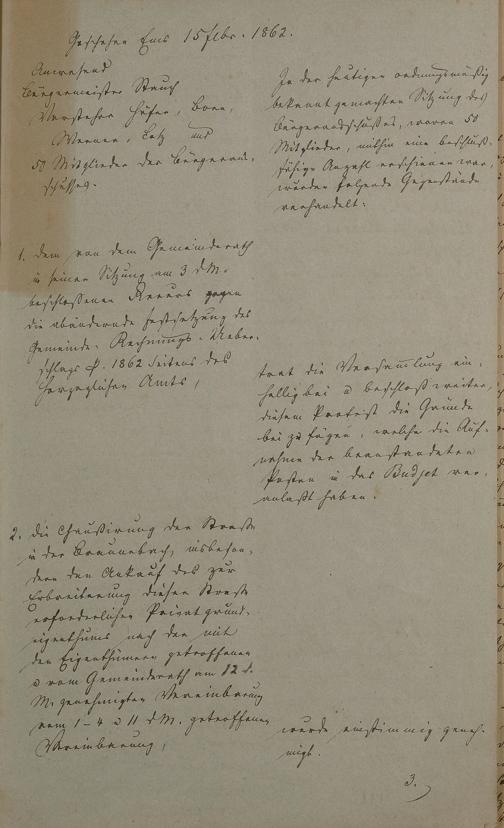 Geschehen Ems 15 Febr. 1862.
Anwesend
Bürgermeister Rauch
Vorsteher Höfer, Born,
Werner, Letz und
50 Mitglieder des Bürgeraus-
schusses.
In der heutigen ordnungsmäßig
bekannt gemachten Sitzung des
Bürgerausschußes, waren 50
Mitglieder, mithin eine beschluß-
fähige Anzahl erschienen war,
wurden folgende Gegenstände
verhandelt:
1. dem von dem Gemeinderath
in seiner Sitzung am 3 d.M.
beschloßenen Recurs gegen
die abändernde Festsetzung des
Gemeinde-Rechnungs-Ueber-
schlags p. 1862 Seitens des
Herzoglichen Amts,
trat die Versammlung ein-
hellig bei u beschloß weiter,
diesem Protest die Gründe
bei zu fügen, welche die Auf-
nahme der beanstandeten
Posten in das Budjet ver-
anlaßt haben.
2. die Chaußirung der Straße
in der Braunebach, insbeson-
dere den Ankauf des zur
Erbreiterung dieser Straße
erforderlichen Privatgrund-
eigenthums nach der mit
den Eigenthümern getroffenen
u vom Gemeinderath am 12 d.
M. genehmigten Vereinbarung
vom 1-4 u 11 d.M. getroffenen
Vereinbarung,
wurde einstimmig geneh-
migt.
3.